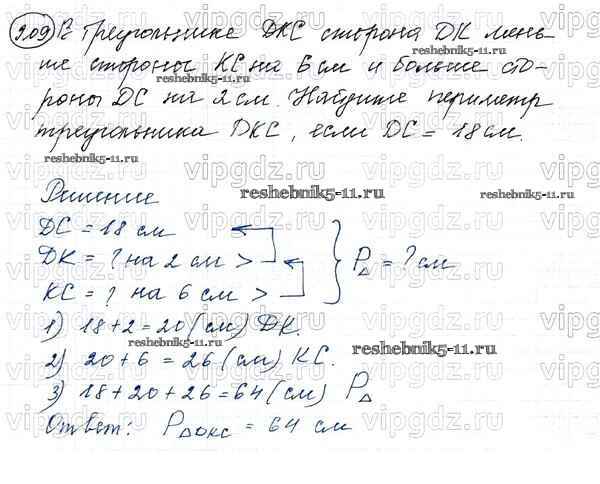 209 В треугольнике DKC сторона DK мень-
ше стороны KC на 6 см и больше сто-
роны DC на 2 см. Найдите периметр
треугольника DKC, если DC = 18 см.
Решение
DC = 18 см
DK = ? на 2 см >
P△ = ? см
KC = ? на 6 см >
1) 18 + 2 = 20 (см) DK.
2) 20 + 6 = 26 (см) KC.
3) 18 + 20 + 26 = 64 (см) P△
Ответ: P△DKC = 64 см
vipgdz.ru
reshebnik5-11.ru